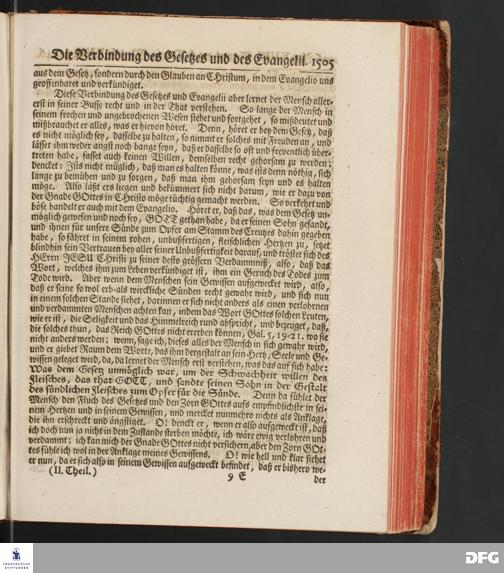 Die Verbindung des Gesetzes und des Evangelii. 1505
aus dem Gesetz, sondern durch den Glauben an CHristum, in dem Evangelio uns
geoffenbaret und verkündiget.
Diese Verbindung des Gesetzes und Evangelii aber lernet der Mensch aller-
erst in seiner Busse recht und in der That verstehen. So lange der Mensch in
seinem frechen und ungebrochenen Wesen stehet und fortgehet, so mißdeutet und
mißbrauchet er alles, was er hievon höret. Denn, höret er bey dem Gesetz, daß
es nicht möglich sey, dasselbe zu halten, so nimmt er solches mit Freuden an, und
lässet ihm weder angst noch bange seyn, daß er dasselbe so oft und freventlich über-
treten habe, fasset auch keinen Willen, demselben recht gehorsam zu werden;
dencket: Ists nicht müglich, daß man es halten könne, was ists denn nöthig, sich
lange zu bemühen und zu sorgen, daß man ihm gehorsam seyn und es halten
möge. Also läßt ers liegen und bekümmert sich nicht darum, wie er dazu von
der Gnade GOttes in Christo möge tüchtig gemacht werden. So verkehrt und
böse handelt er auch mit dem Evangelio. Höret er, daß das, was dem Gesetz un-
möglich gewesen und noch sey, GOTT gethan habe, da er seinen Sohn gesandt,
und ihnen für unsere Sünde zum Opfer am Stamm des Creutzes dahin gegeben
habe, so fähret in seinem rohen, unbußfertigen, fleischlichen Hertzen zu, setzet
blindhin sein Vertrauen bey aller seiner Unbußfertigkeit darauf, und tröstet sich des
HErrn JESU Christi zu seiner desto grössern Verdammniß, also, daß das
Wort, welches ihm zum Leben verkündiget ist, ihm ein Geruch des Todes zum
Tode wird. Aber wenn dem Menschen sein Gewissen aufgewecket wird, also,
daß er seine so wol erb-als wirckliche Sünden recht gewahr wird, und sich nun
in einem solchen Stande siehet, darinnen er sich nicht anders als einen verlohrnen
und verdammten Menschen achten kan, indem das Wort GOttes solchen Leuten,
wie er ist, die Seligkeit und das Himmelreich rund abspricht, und bezeuget, daß,
die solches thun, das Reich GOttes nicht ererben können, Gal. 5, 19-21. wo sie
nicht anders werden; wenn, sage ich, dieses alles der Mensch in sich gewahr wird,
und er giebet Raum dem Worte, das ihm dergestalt an sein Hertz, Seele und Ge-
wissen geleget wird, da, da lernet der Mensch erst verstehen, was das auf sich habe:
Was dem Gesetz unmöglich war, um der Schwachheit willen des
Fleisches, das that GOTT, und sandte seinen Sohn in der Gestalt
des sündlichen Fleisches zum Opfer für die Sünde. Denn da fühlet der
Mensch den Fluch des Gesetzes und den Zorn GOttes aufs empfindlichste in sei-
nem Hertzen und in seinem Gewissen, und mercket nunmehro nichts als Anklage,
die ihn erschreckt und ängstiget. O! denckt er, wenn er also aufgeweckt ist, daß
ich doch nun ja nicht in dem Zustande sterben möchte, ich wäre ewig verlohren und
verdammt; ich kan mich der Gnade GOttes nicht versichern, aber den Zorn GOt-
tes fühle ich wol in der Anklage meines Gewissens. O! wie hell und klar siehet
er nun, da er sich also in seinem Gewissen aufgeweckt befindet, daß er bishero we-
(II. Theil.) 9 E der
FRANCKESCHE STIFTUNGEN
DFG